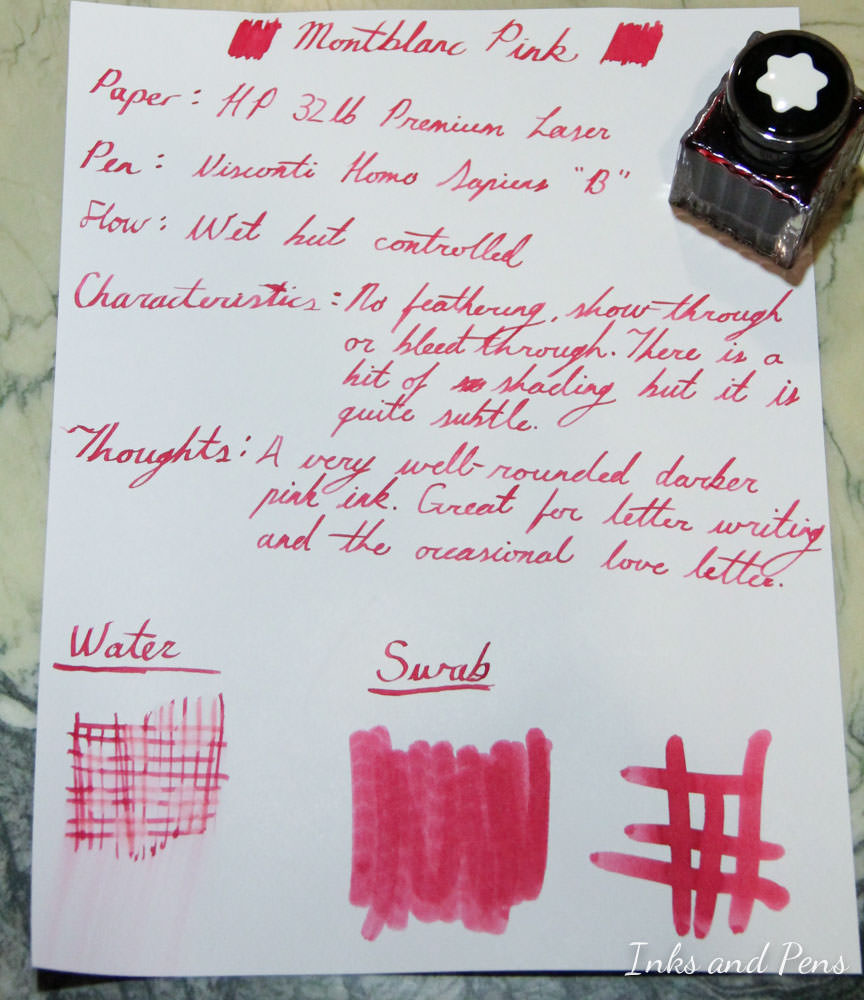 Montblanc Pink
Paper: HP 32lb Premium Laser
Pen: Visconti Homo Sapiens "B"
Flow: Wet but controlled
Characteristics: No feathering, show-through
or bleed through. There is a
bit of shading but it is
quite subtle.
Thoughts: A very well-rounded darker
pink ink. Great for letter writing
and the occasional love letter.
Water
Swab
Inks and Pens